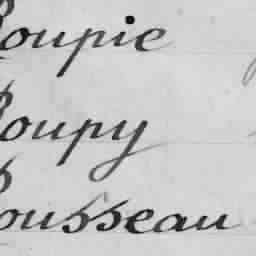 Roupie
Roupy
Rousseau